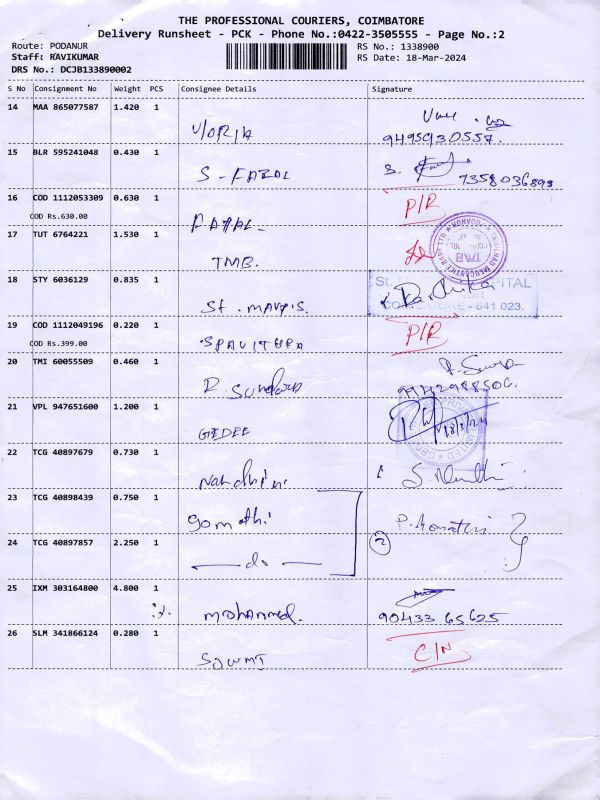 THE PROFESSIONAL COURIERS, COIMBATORE
Delivery Runsheet - PCK - Phone No.:0422-3505555 - Page No.:2
Route: PODANUR
Staff: RAVIKUMAR
DRS No.: DCJB133890002
RS No.: 1338900
RS Date: 18-Mar-2024
S No Consignment No Weight PCS Consignee Details Signature
14 MAA 865077587 1.420 1
15 BLR 595241048 0.430 1
S-FAZAL S.
7358036893
16 COD 1112053309 0.630 1 P/R
COD Rs.630.00
17 TUT 6764221 1.530 1
TMB.
18 STY 6036129 0.835 1
St. MARYS.
COIMBATORE - 641 023.
19 COD 1112049196 0.220 1 P/R
COD Rs.399.00
20 TMI 60055509 0.460 1
R. Sundara 9942988506.
21 VPL 947651600 1.200 1
GEDEE 18/3/24
22 TCG 40897679 0.730 1
Nandhini
23 TCG 40898439 0.750 1
gomathi P. Gomathi
24 TCG 40897857 2.250 1 2
— do —
25 IXM 303164800 4.800 1
mohammed. 90433 65625
26 SLM 341866124 0.280 1
SOWMI C/N